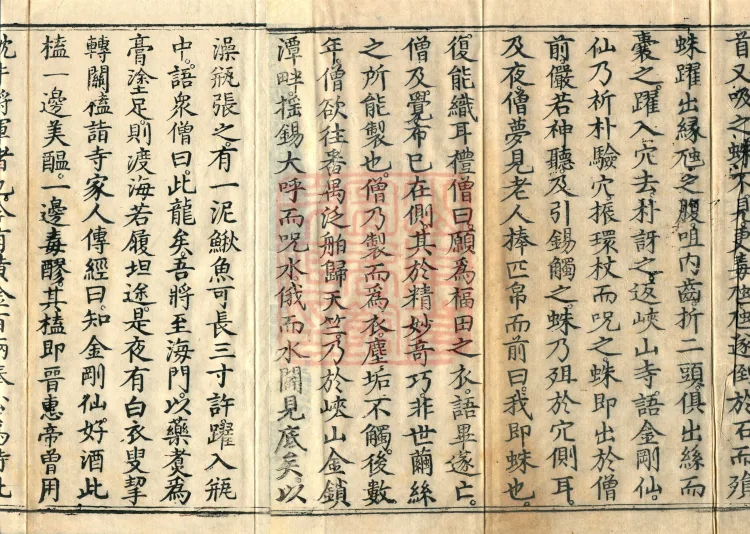 首又吸之蛛不見更毒虺虺遂倒於石而殞
蛛躍出縁虺之腹咀内齒折二頭俱出絲而
囊之躍入穴去朴訝之返峽山寺語金剛仙
仙乃祈朴驗穴振環杖而呪之蛛即出於僧
前儼若神聽及引錫觸之蛛乃殂於穴側耳
及夜僧夢見老人捧匹帛而前曰我即蛛也
復能織耳禮僧曰願為福田之衣語畢遂亡
僧及覺布已在側其於精妙奇巧非世繭絲
之所能製也僧乃製而為衣塵垢不觸後數
年僧欲往番禺泛舶歸天竺乃於峽山金鎖
潭畔揺錫大呼而呪水俄而水闢見底矣以
澡瓶張之有一泥鰍魚可長三寸許躍入瓶
中語衆僧曰此龍矣吾將至海門以藥煑為
膏塗足則渡海若履坦途是夜有白衣叟挈
轉關榼詣寺家人傳經曰知金剛仙好酒此
榼一邊美醖一邊毒醪其榼即晋惠帝曾用
鴆牛將軍者也今有黄金百兩奉公為持此